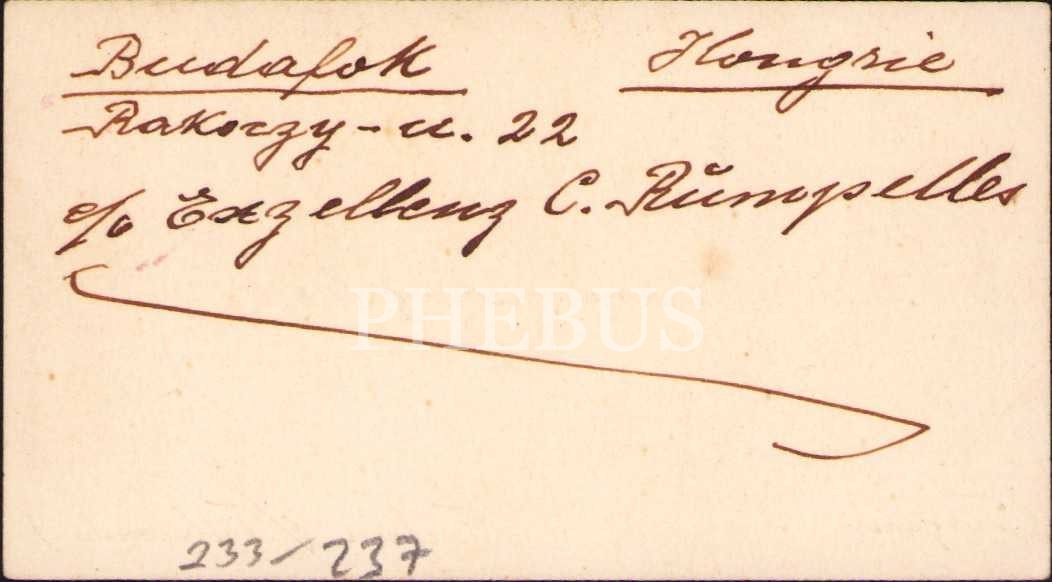 Budafok Hongrie
Rakoczy-u. 22
c/o Exzellenz C. Rŭmpelles
PHEBUS
233/237